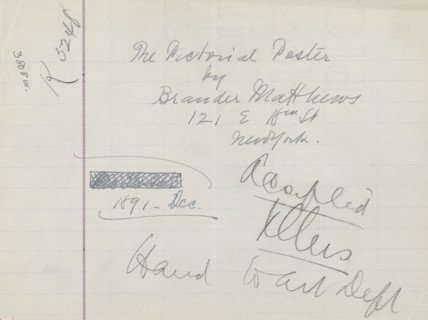 K 5248
3808W.
The Pictorial Poster
by
Brander Matthews
121 E 18th St
New York.
Accepted
1891 - Dec.
Hand to Art Dept